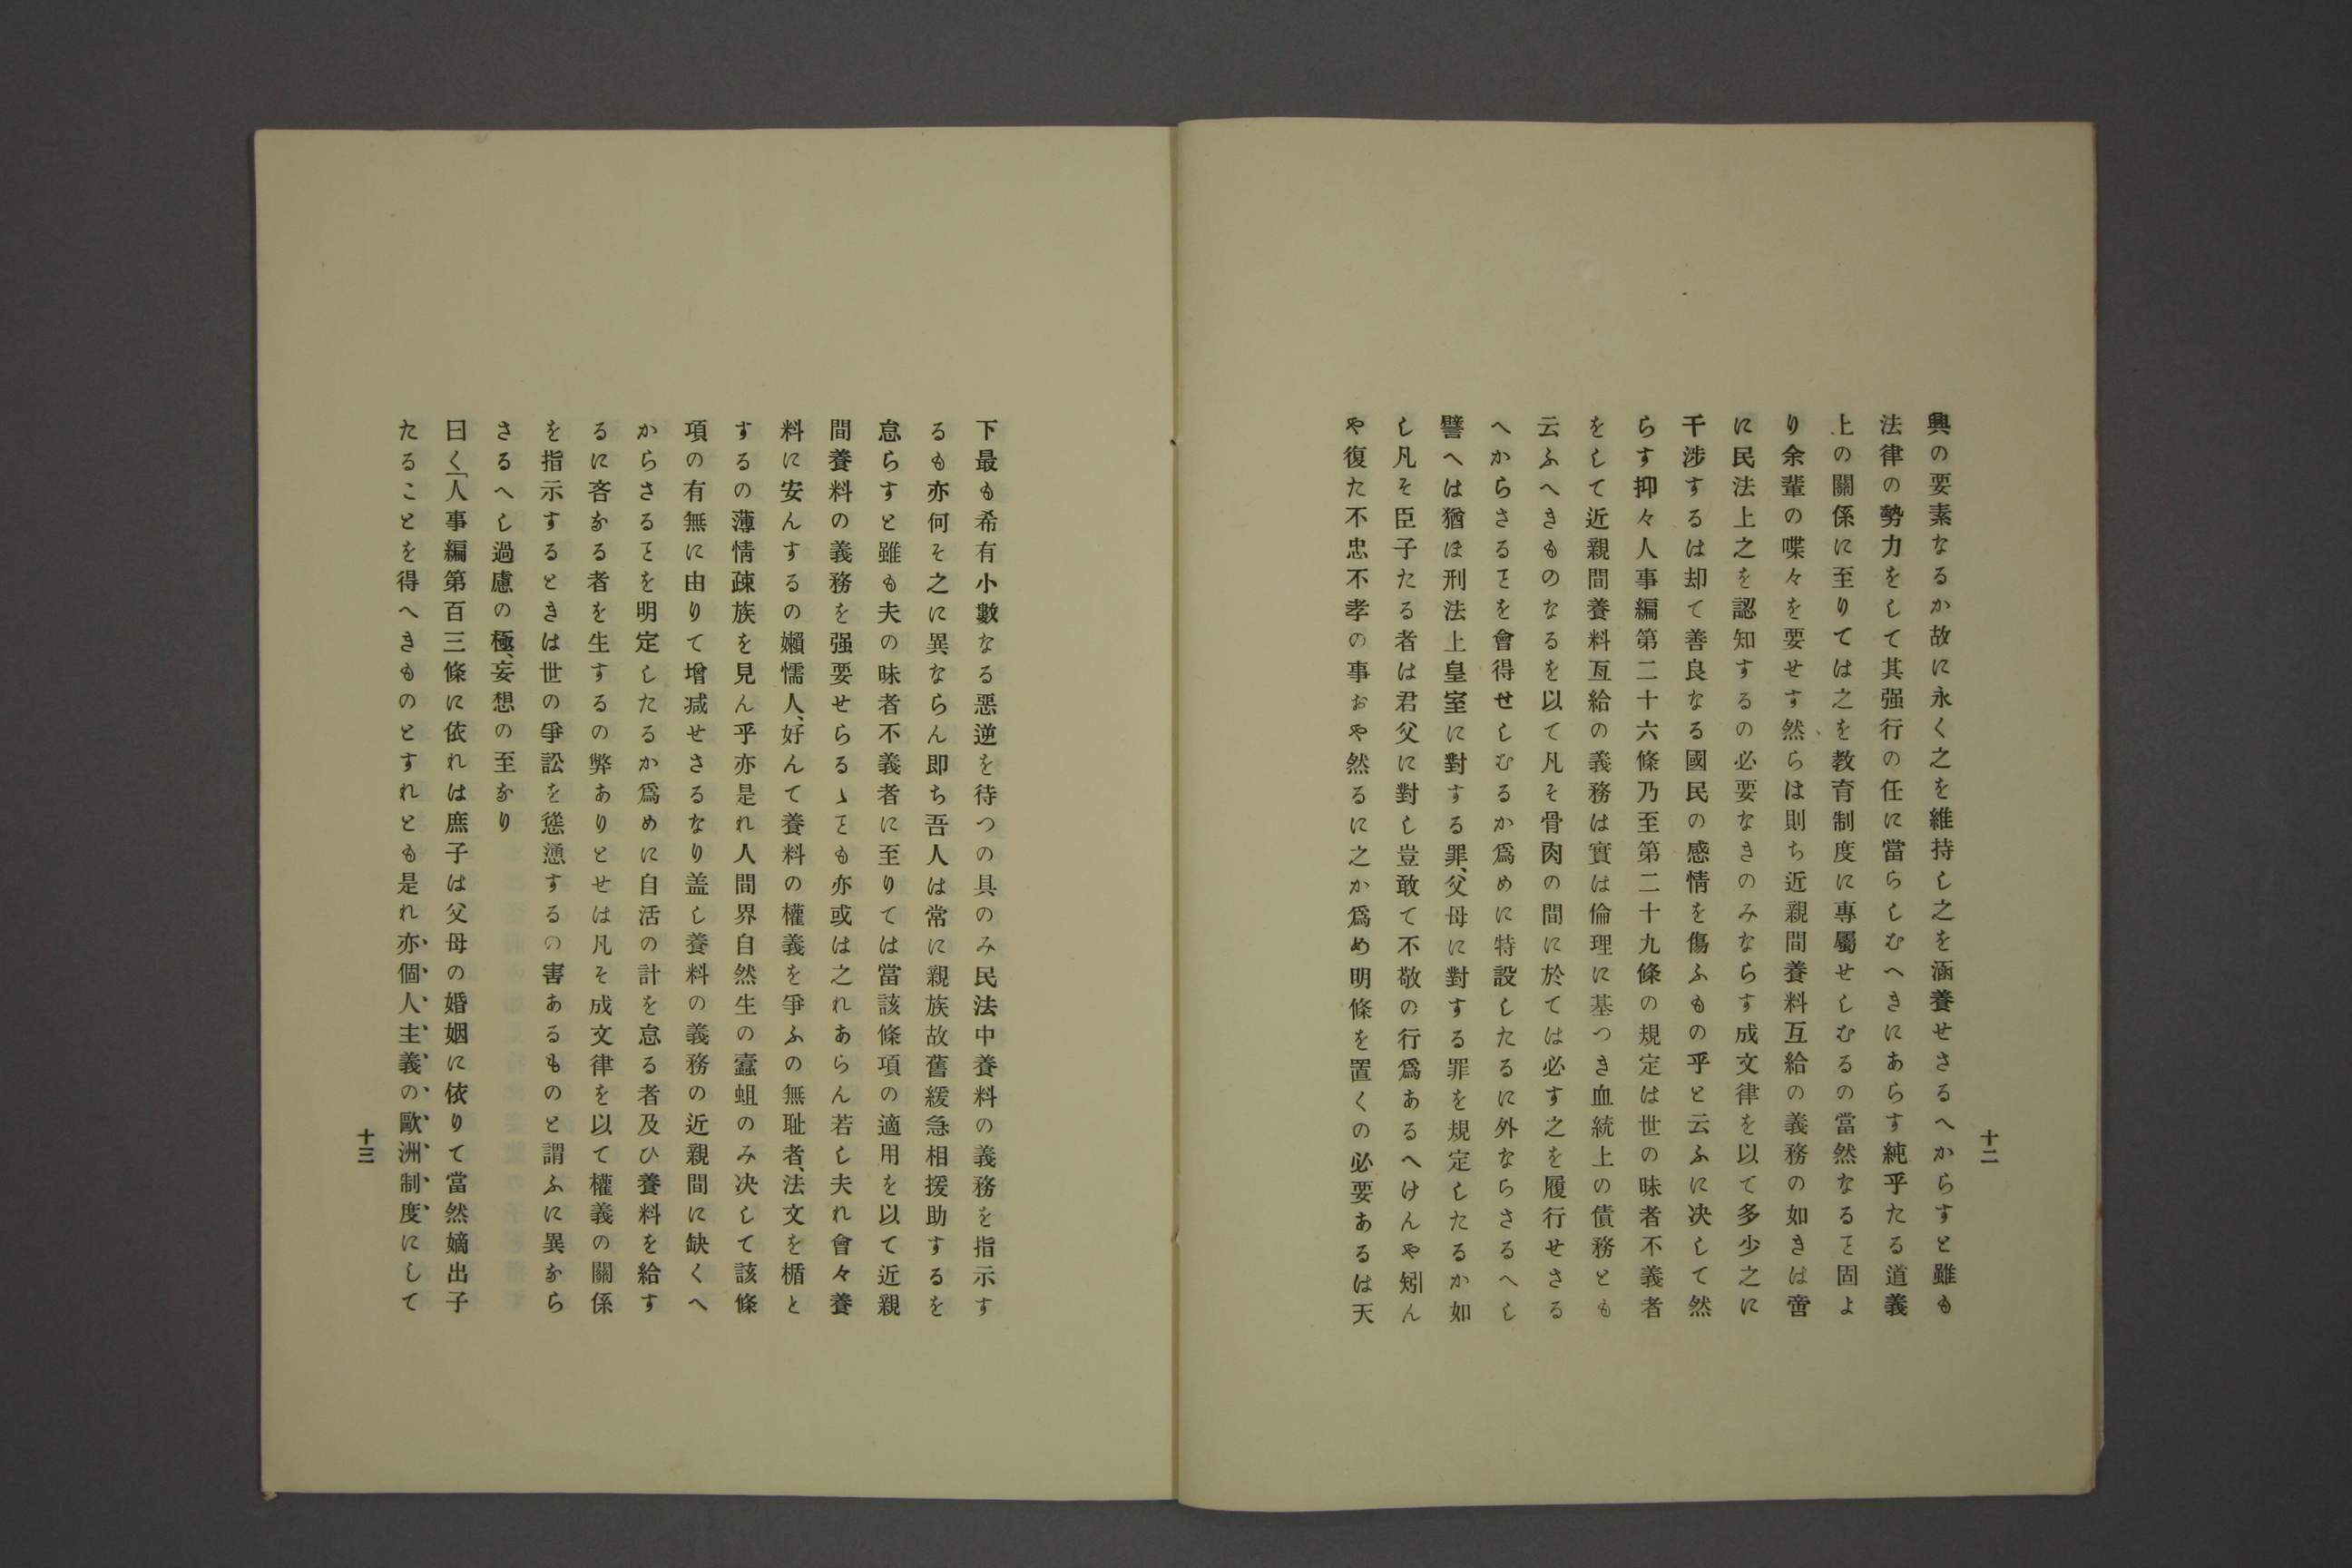 十二
興の要素なるか故に永く之を維持し之を涵養せさるへからすと雖も
法律の勢力をして其强行の任に當らしむへきにあらす純乎たる道義
上の關係に至りては之を教育制度に專屬せしむるの當然なるを固よ
り余輩の喋々を要せす然らは則ち近親間養料互給の義務の如きは啻
に民法上之を認知するの必要なきのみならす成文律を以て多少之に
干涉するは却て善良なる國民の感情を傷ふもの乎と云ふに决して然
らす抑々人事編第二十六條乃至第二十九條の規定は世の昧者不義者
をして近親間養料互給の義務は實は倫理に基つき血統上の債務とも
云ふへきものなるを以て凡そ骨肉の間に於ては必す之を履行せさる
へからさるヿを會得せしむるか爲めに特設したるに外ならさるへし
譬へは猶ほ刑法上皇室に對する罪、父母に對する罪を規定したるか如
し凡そ臣子たる者は君父に對し豈敢て不敬の行爲あるへけんや矧ん
や復た不忠不孝の事おや然るに之か爲め明條を置くの必要あるは天
下最も希有小數なる惡逆を待つの具のみ民法中養料の義務を指示す
るも亦何そ之に異ならん即ち吾人は常に親族故舊緩急相援助するを
怠らすと雖も夫の昧者不義者に至りては當該條項の適用を以て近親
間養料の義務を强要せらるゝヿも亦或は之れあらん若し夫れ會々養
料に安んするの嬾懦人、好んて養料の權義を爭ふの無耻者、法文を楯と
するの薄情疎族を見ん乎亦是れ人間界自然生の蠧蛆のみ决して該條
項の有無に由りて增减せさるなり盖し養料の義務の近親間に缺くへ
からさるヿを明定したるか爲めに自活の計を怠る者及ひ養料を給す
るに吝なる者を生するの弊ありとせは凡そ成文律を以て權義の關係
を指示するときは世の爭訟を慫慂するの害あるものと謂ふに異なら
さるへし過慮の極、妄想の至なり
曰く「人事編第百三條に依れは庶子は父母の婚姻に依りて當然嫡出子
たることを得へきものとすれとも是れ亦個人主義の歐洲制度にして
十三